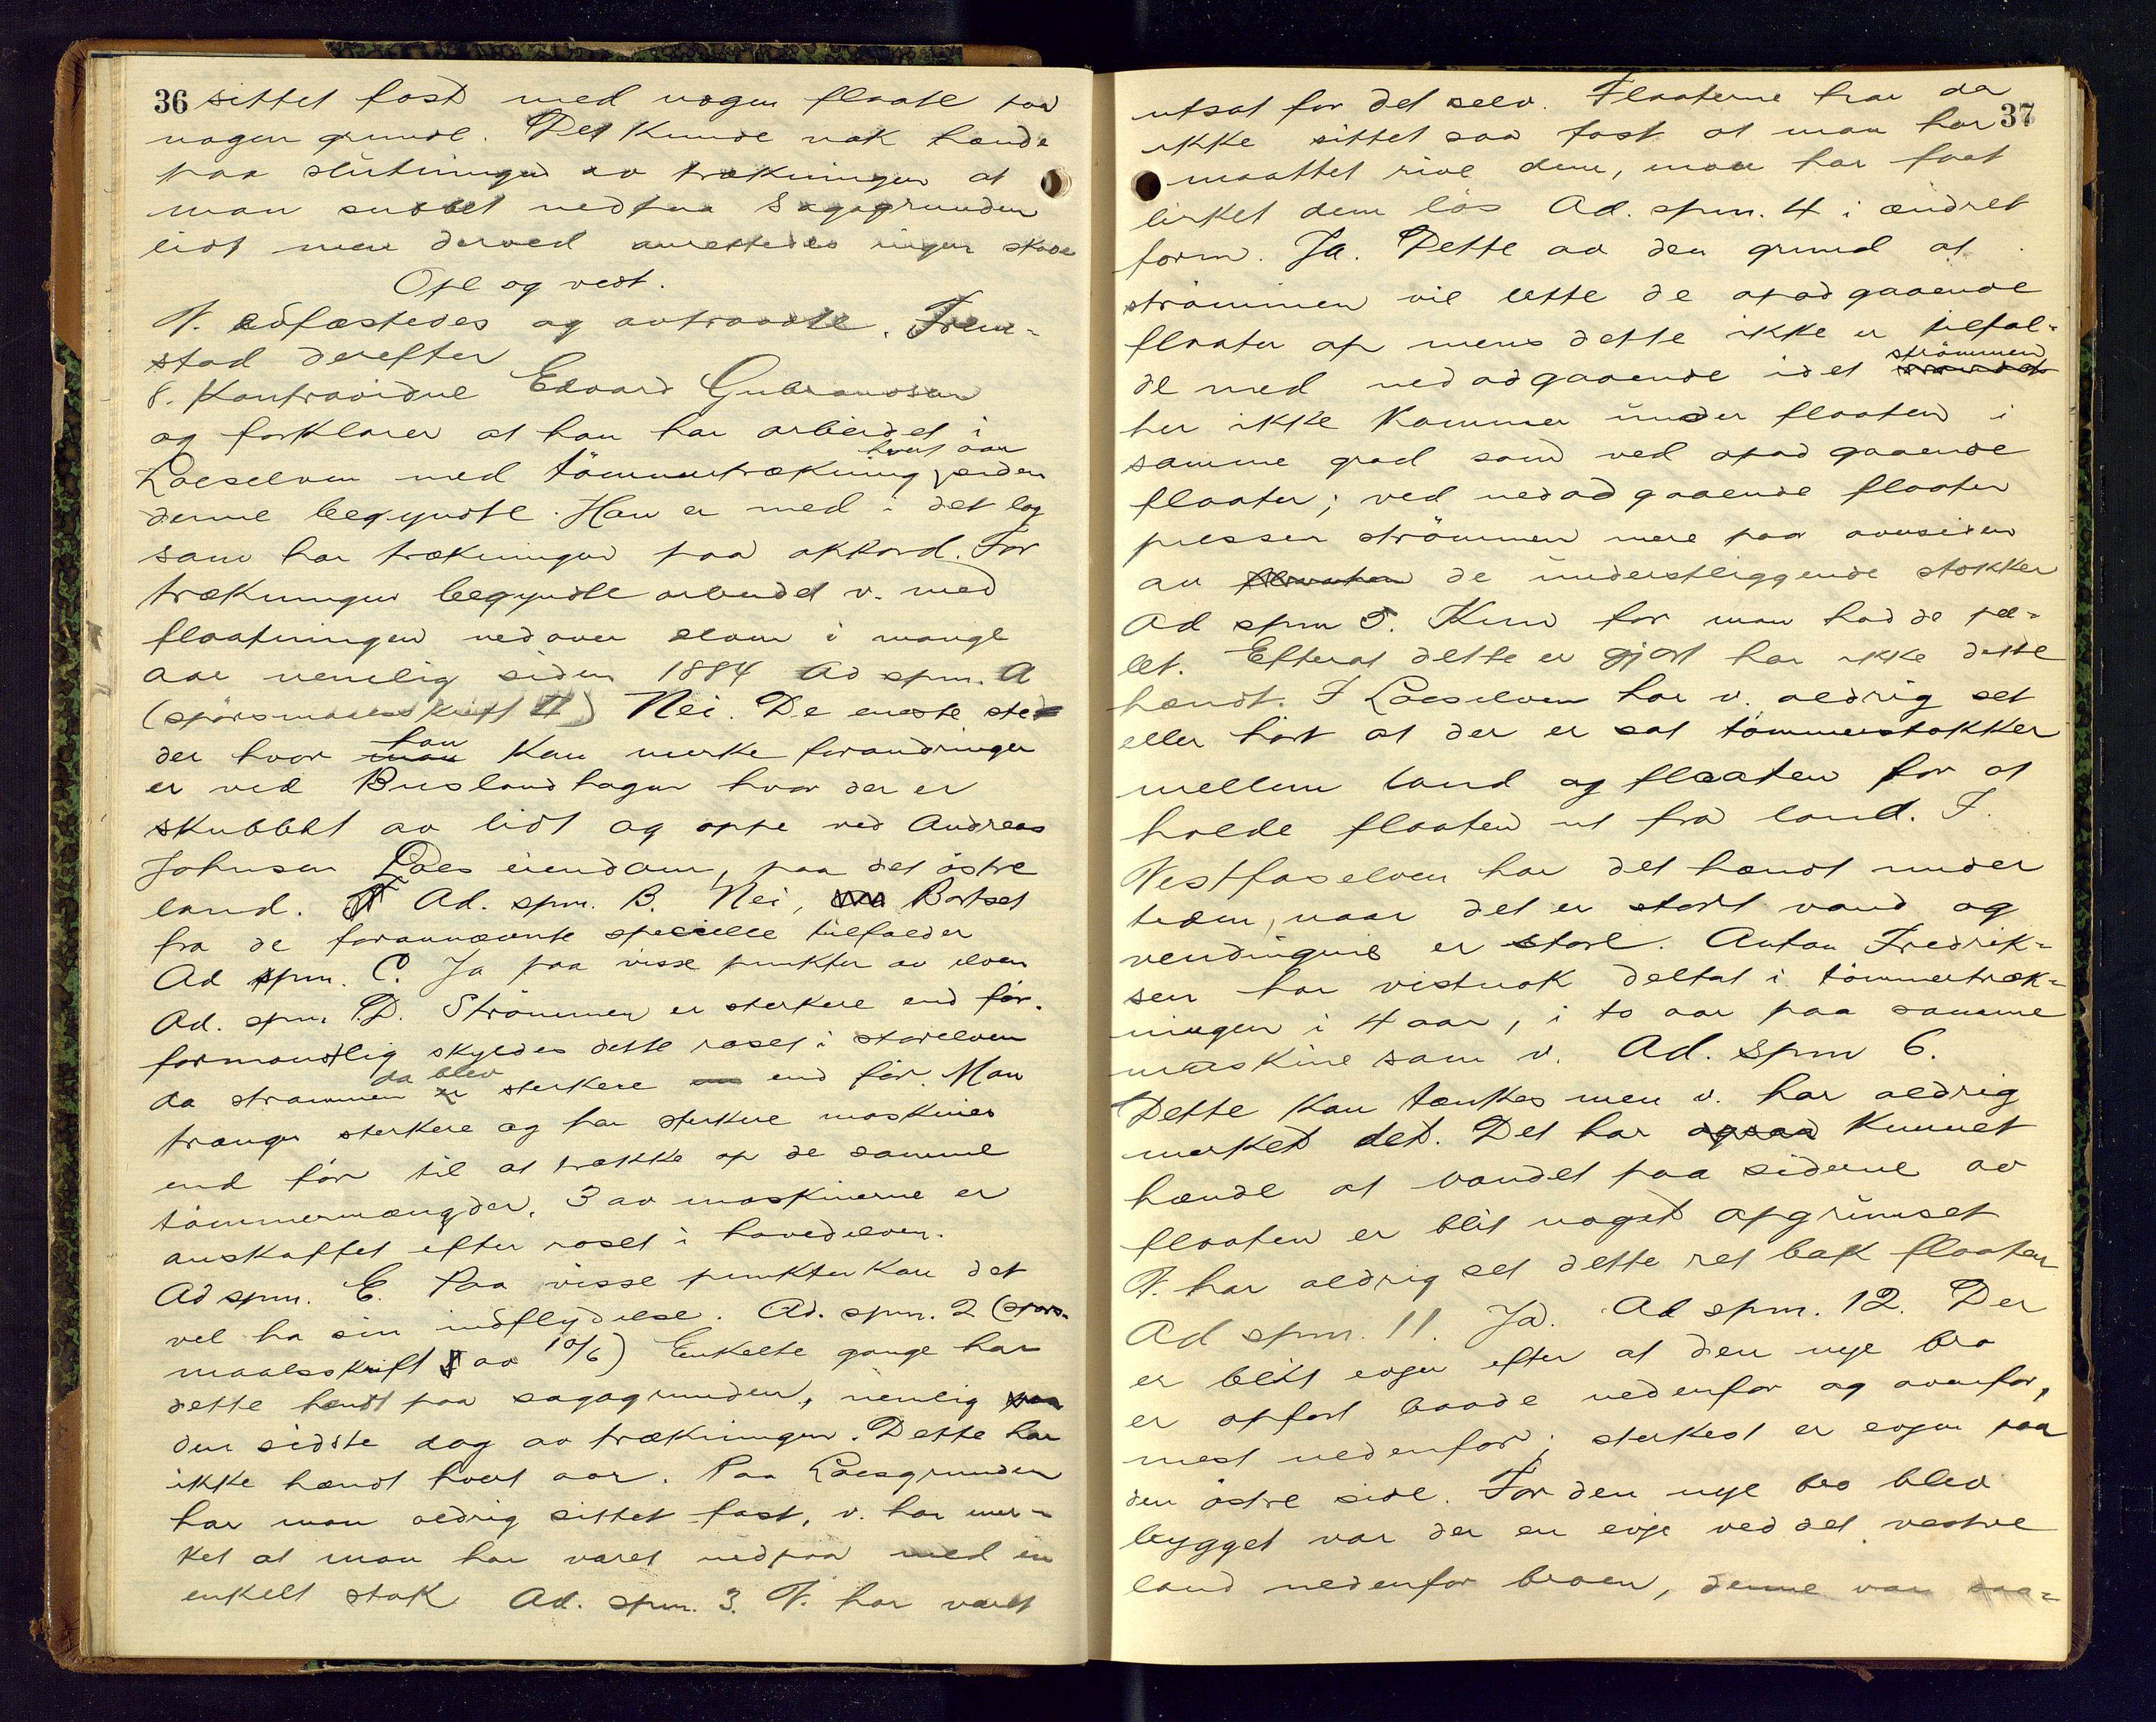 36 sittet fast med nogen flaate paa
nogen grunde. Det kunde nok hænde
paa slutningen av trækningen at
man subbet nedpaa Sagagrunden
lidt men derved anrettedes ingen skade
Opl og vedt.
V. edfæstedes og avtraadte. Frem-
stod derefter
8. Kontravidne Edvard Gulbrandsen
og forklarer at han har arbeidet i
Loeselven med tömmertrækning hvert aar siden
denne begyndte. Han er med i det lag
som har trækningen paa akkord. Før
trækningen begyndte arbeidet v. med
flaatningen nedover elven i mange
aar nemlig siden 1884 Ad spm. A
(spörsmaalsskrift II) Nei. De eneste ste-
der hvor han kan merke forandringer
er ved Buslandhagen hvor der er
skubbet av lidt og oppe ved Andreas
Johnsen Loes eiendom, paa det östre
land. Ad. spm. B. Nei, Bortset
fra de forannævnte specielle tilfælder
Ad spm. C. Ja paa visse punkter av elven
Ad. spm. D. Strömmen er sterkere end før.
formodentlig skyldes dette raset i storelven
da strømmen da blev sterkere end før. Man
trænger sterkere og har sterkere maskiner
end før til at trække op de samme
tömmermængder. 3 av maskinerne er
anskaffet efter raset i hovedelven.
Ad spm. E. Paa visse punkter kan det
vel ha sin indflydelse. Ad. spm. 2 (spørs-
maalsskrift I av 10/6) Enkelte gange har
dette hændt paa sagagrunden, nemlig
den sidste dag av trækningen. Dette har
ikke hændt hvert aar. Paa Loesgrunden
har man aldrig sittet fast, v. har mer-
ket at man har været nedpaa med en
enkelt stok Ad. spm. 3. V. har været
37
utsat for det selv. Flaaterne har da
ikke sittet saa fast at man har
maattet rive dem, man har faat
lirket dem lös Ad. spm. 4 i ændret
form. Ja. Dette av den grund at
strömmen vil lette de opadgaaende
flaater op mens dette ikke er tilfæl-
de med nedadgaaende idet strömmen
her ikke kommer under flaaten i
samme grad som ved opadgaaende
flaater; ved nedadgaaende flaater
presser strömmen mere paa oversiden
av de understliggende stokker
Ad spm 5. Kun før man hadde pæ-
let. Efterat dette er gjort har ikke dette
hændt. I Loeselven har v. aldrig set
eller hört at der er sat tömmerstokker
mellem land og flaaten for at
holde flaaten ut fra land. I
Vestfoselven har det hændt under
træm, naar det er stort vand og
vendingene er store. Anton Fredrik-
sen har vistnok deltat i tömmertræk-
ningen i 4 aar, i to aar paa samme
maskine som v. Ad. spm 6.
Dette kan tænkes men v. har aldrig
merket det. Det har ogsaa kunnet
hænde at vandet paa siderne av
flaaten er blit noget opgrumset
V. har aldrig set dette ret bak flaaten
Ad spm. 11. Ja. Ad spm. 12. Der
er blit evjer efter at den nye bro
er opført baade nedenfor og ovenfor,
mest nedenfor; sterkest er evjen paa
den östre side. Før den nye bro blev
bygget var der en evje ved det vestre
land nedenfor broen, denne var saa-